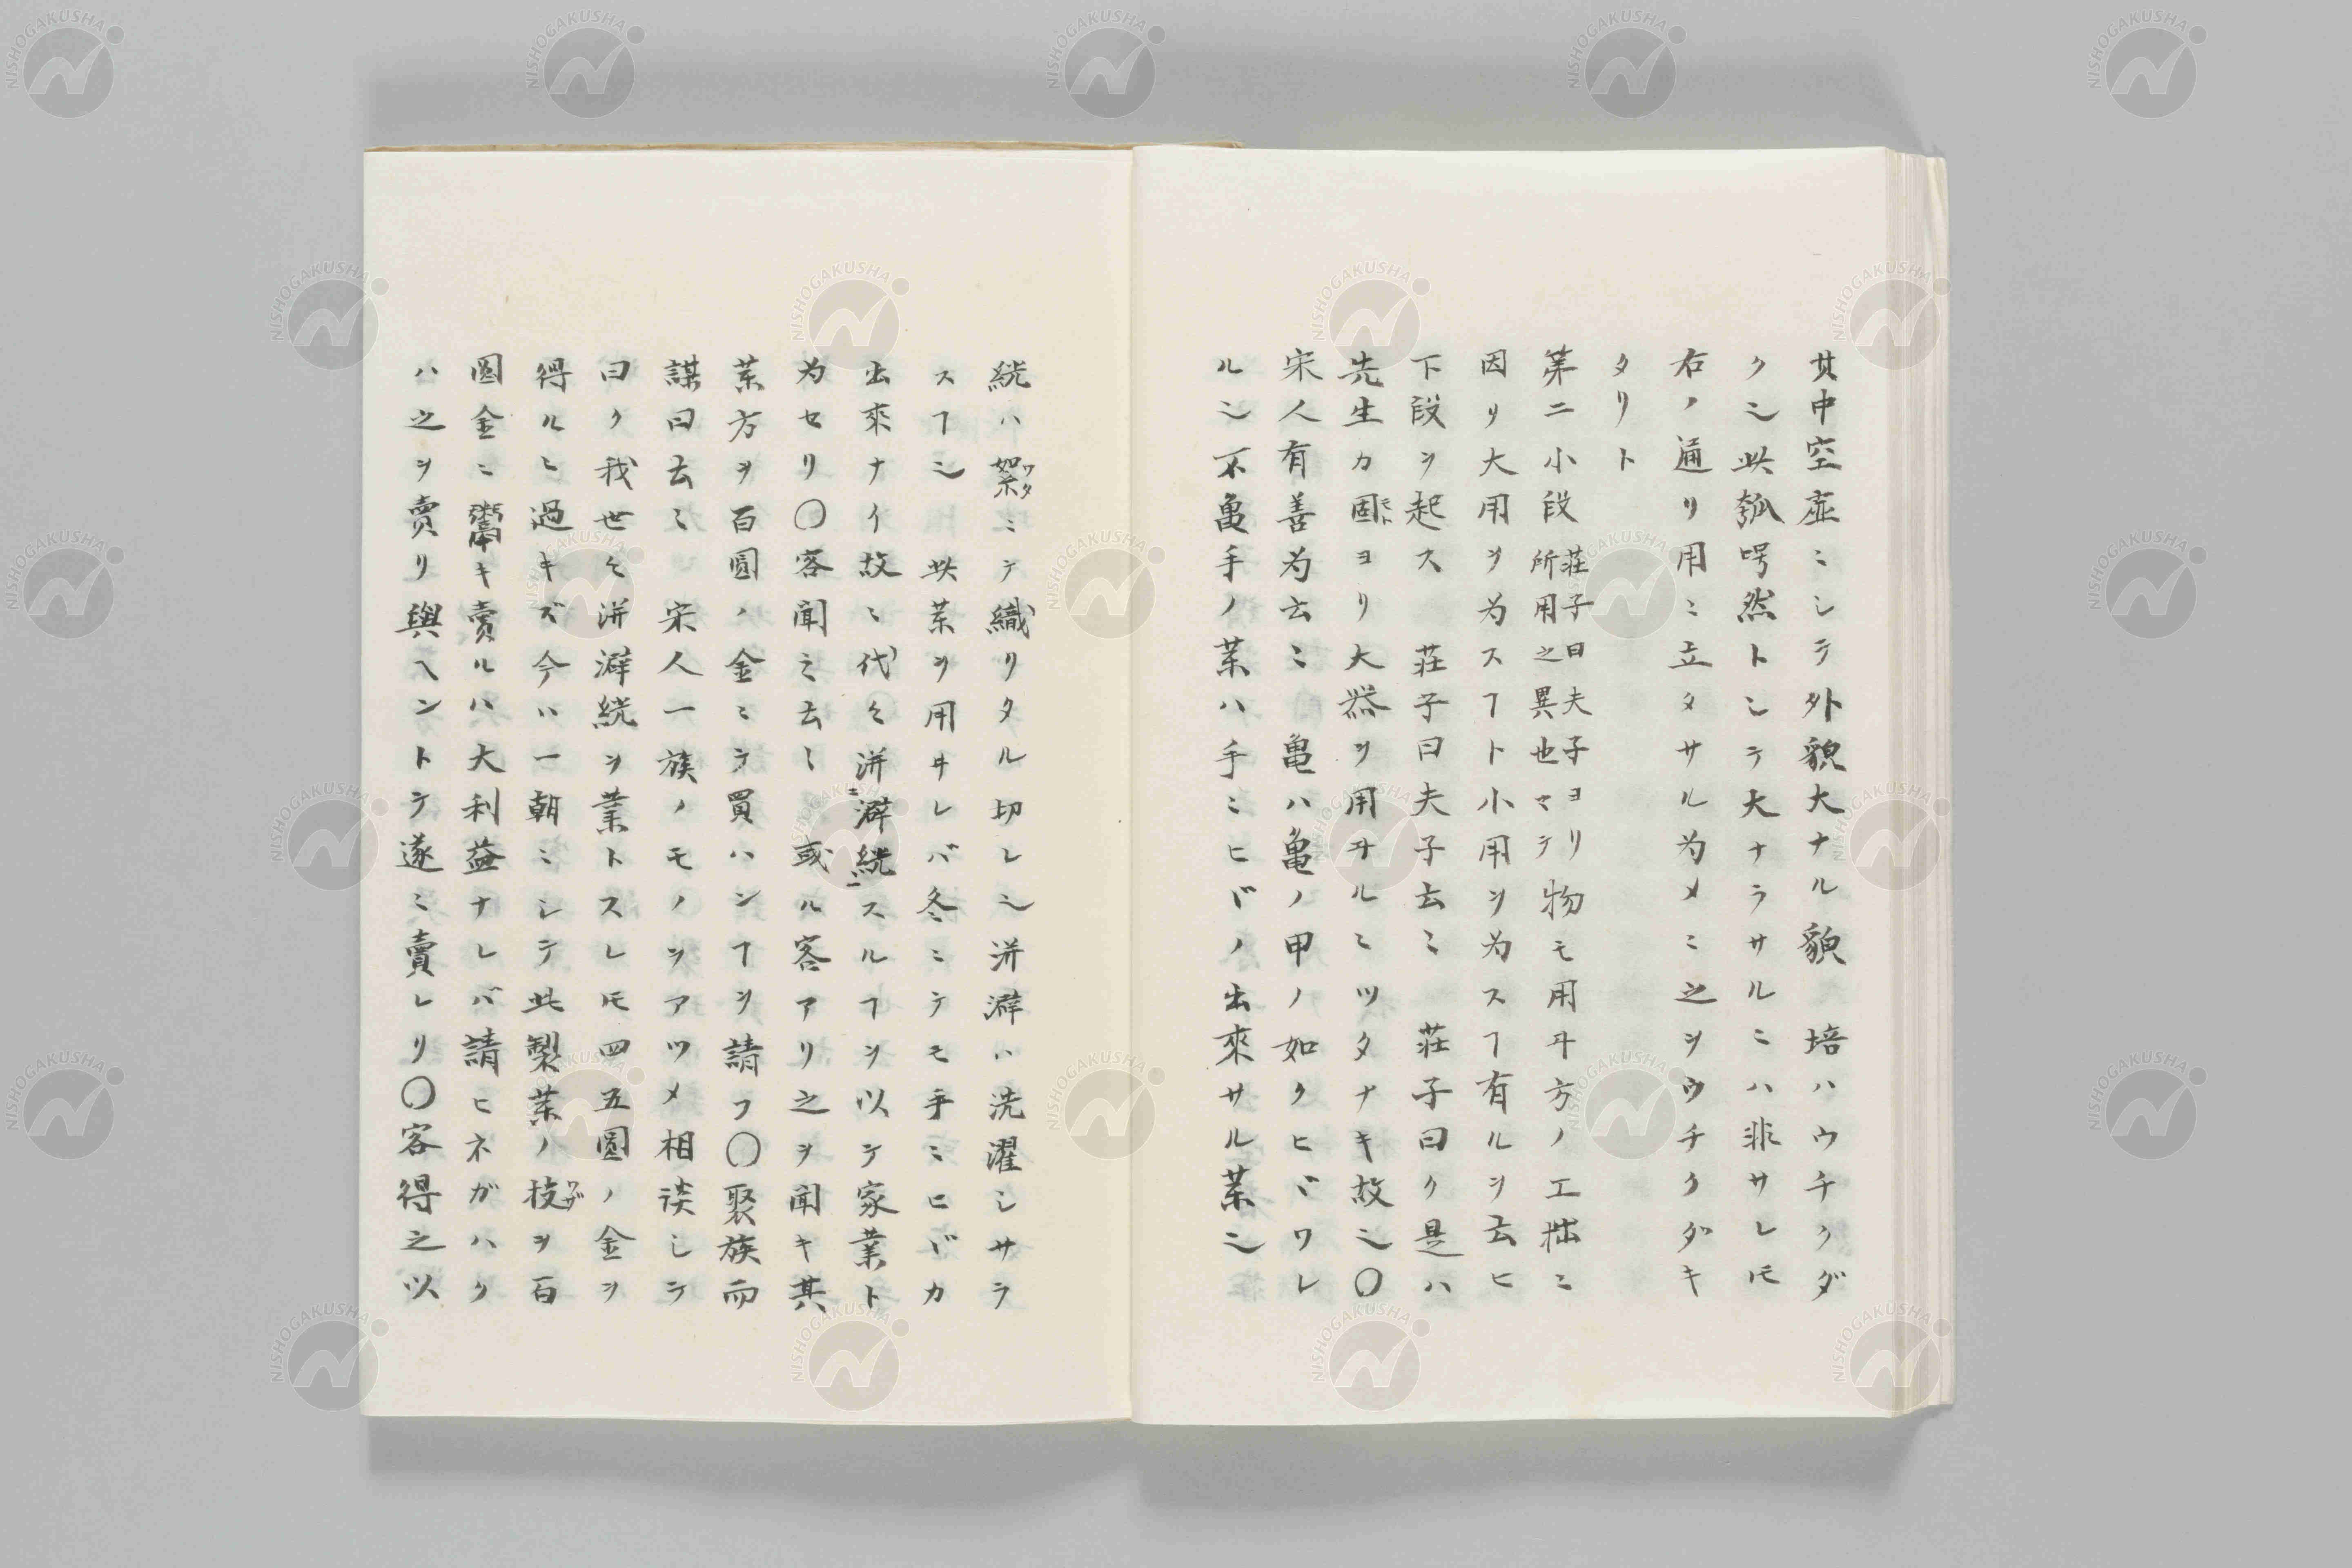 其中空虚ニシテ外貌大ナル貌　培ハウチクダ
ク𪜈此瓠呺然トシテ大ナラサルニハ非サレ𪜈
右ノ通リ用ニ立タサル為メニ之ヲウチクダキ
タリト
第二小段 荘子曰夫子ヨリ 所用之異也マテ 物モ用ヰ方ノ工拙ニ
因リ大用ヲ為スヿト小用ヲ為スヿ有ルヲ云ヒ
下段ヲ起ス　荘子曰夫子云ミ　荘子曰ク是ハ
先生カ固ヨリ大器ヲ用ヰルニツタナキ故也〇
宋人有善為云ミ　亀ハ亀ノ甲ノ如クヒヾワレ
ル也不亀手ノ薬ハ手ニヒヾノ出來サル薬也
絖ハ絮ワタニテ織リタル切レ也洴澼ハ洗濯シサラ
スヿ也　此薬ヲ用ヰレバ冬ニテモ手ニヒヾカ
出來ナイ故ニ代々洴澼絖スルヿヲ以テ家業ト
為セリ〇客聞之云〻　或ル客アリ之ヲ聞キ其
薬方ヲ百圓ノ金ニテ買ハンヿヲ請フ〇聚族而
謀曰云ミ　宋人一族ノモノヲアツメ相談シテ
曰ク我世々洴澼絖ヲ業トスレ𪜈四五圓ノ金ヲ
得ルニ過キズ今ハ一朝ニシテ此製薬ノ技ワザヲ百
圓金ニ鬻キ賣ルハ大利益ナレバ請ヒネガハク
ハ之ヲ賣リ與ヘントテ遂ニ賣レリ〇客得之以
NISHOGAKUSHA